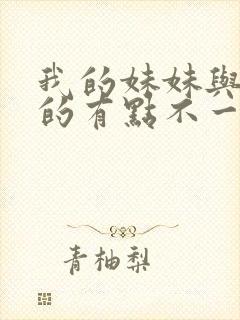 我的妹妹與
的有點不一
青柚梨